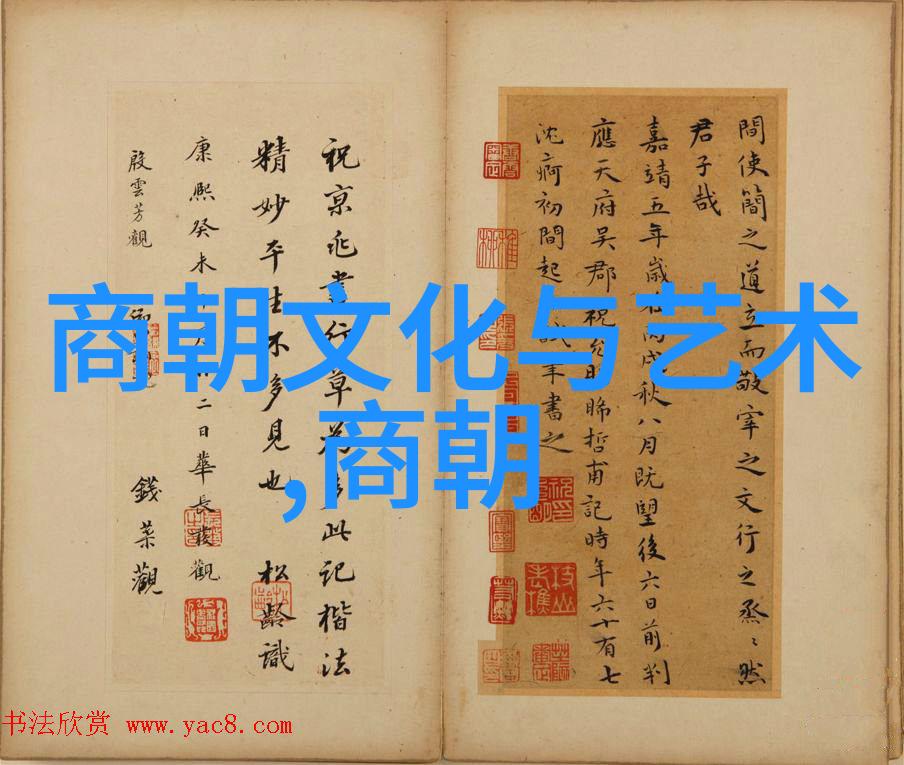 商朝文化与艺术
,商朝
間使簡之道立而敬宰之文行之烝〻然
君子哉
嘉靖五年歲在丙戌秋八月既望後六日前判
應天府吳郡祝允明晞哲甫記時年六十有七
沈痾初間起試筆書之
祝京兆書行草為多此記楷法
精妙平生不多見也 松齡識
康熙癸未 二日華長發觀
殷雲芳觀
錢葉觀
书法欣赏 www.yac8.com